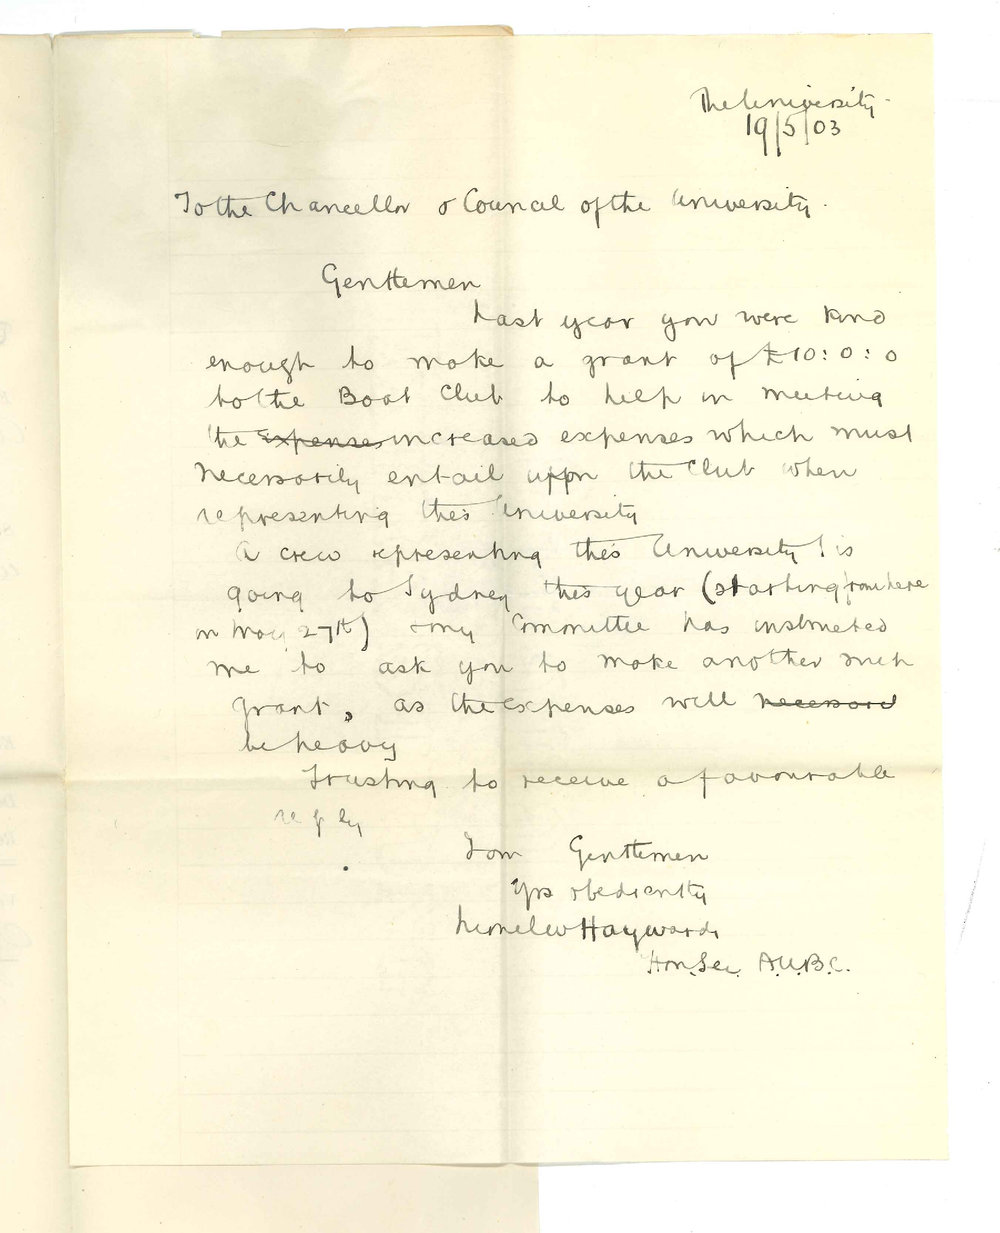 The University.
19/5/03
To the Chancellor & Council of the University.
Gentlemen
Last year you were kind
enough to make a grant of £10:0:0
to the Boat Club to help in meeting
the expenses increased expenses which must
necessarily entail upon the Club when
representing this University
A crew representing this University is
going to Sydney this year (starting from here
on May 27th) & my Committee has instructed
me to ask you to make another such
grant, as the expenses will necessari
be heavy
Trusting to receive a favourable
reply
I am Gentlemen
Yrs obediently
Lionel W Hayward
Hon. Sec. A.U.B.C.